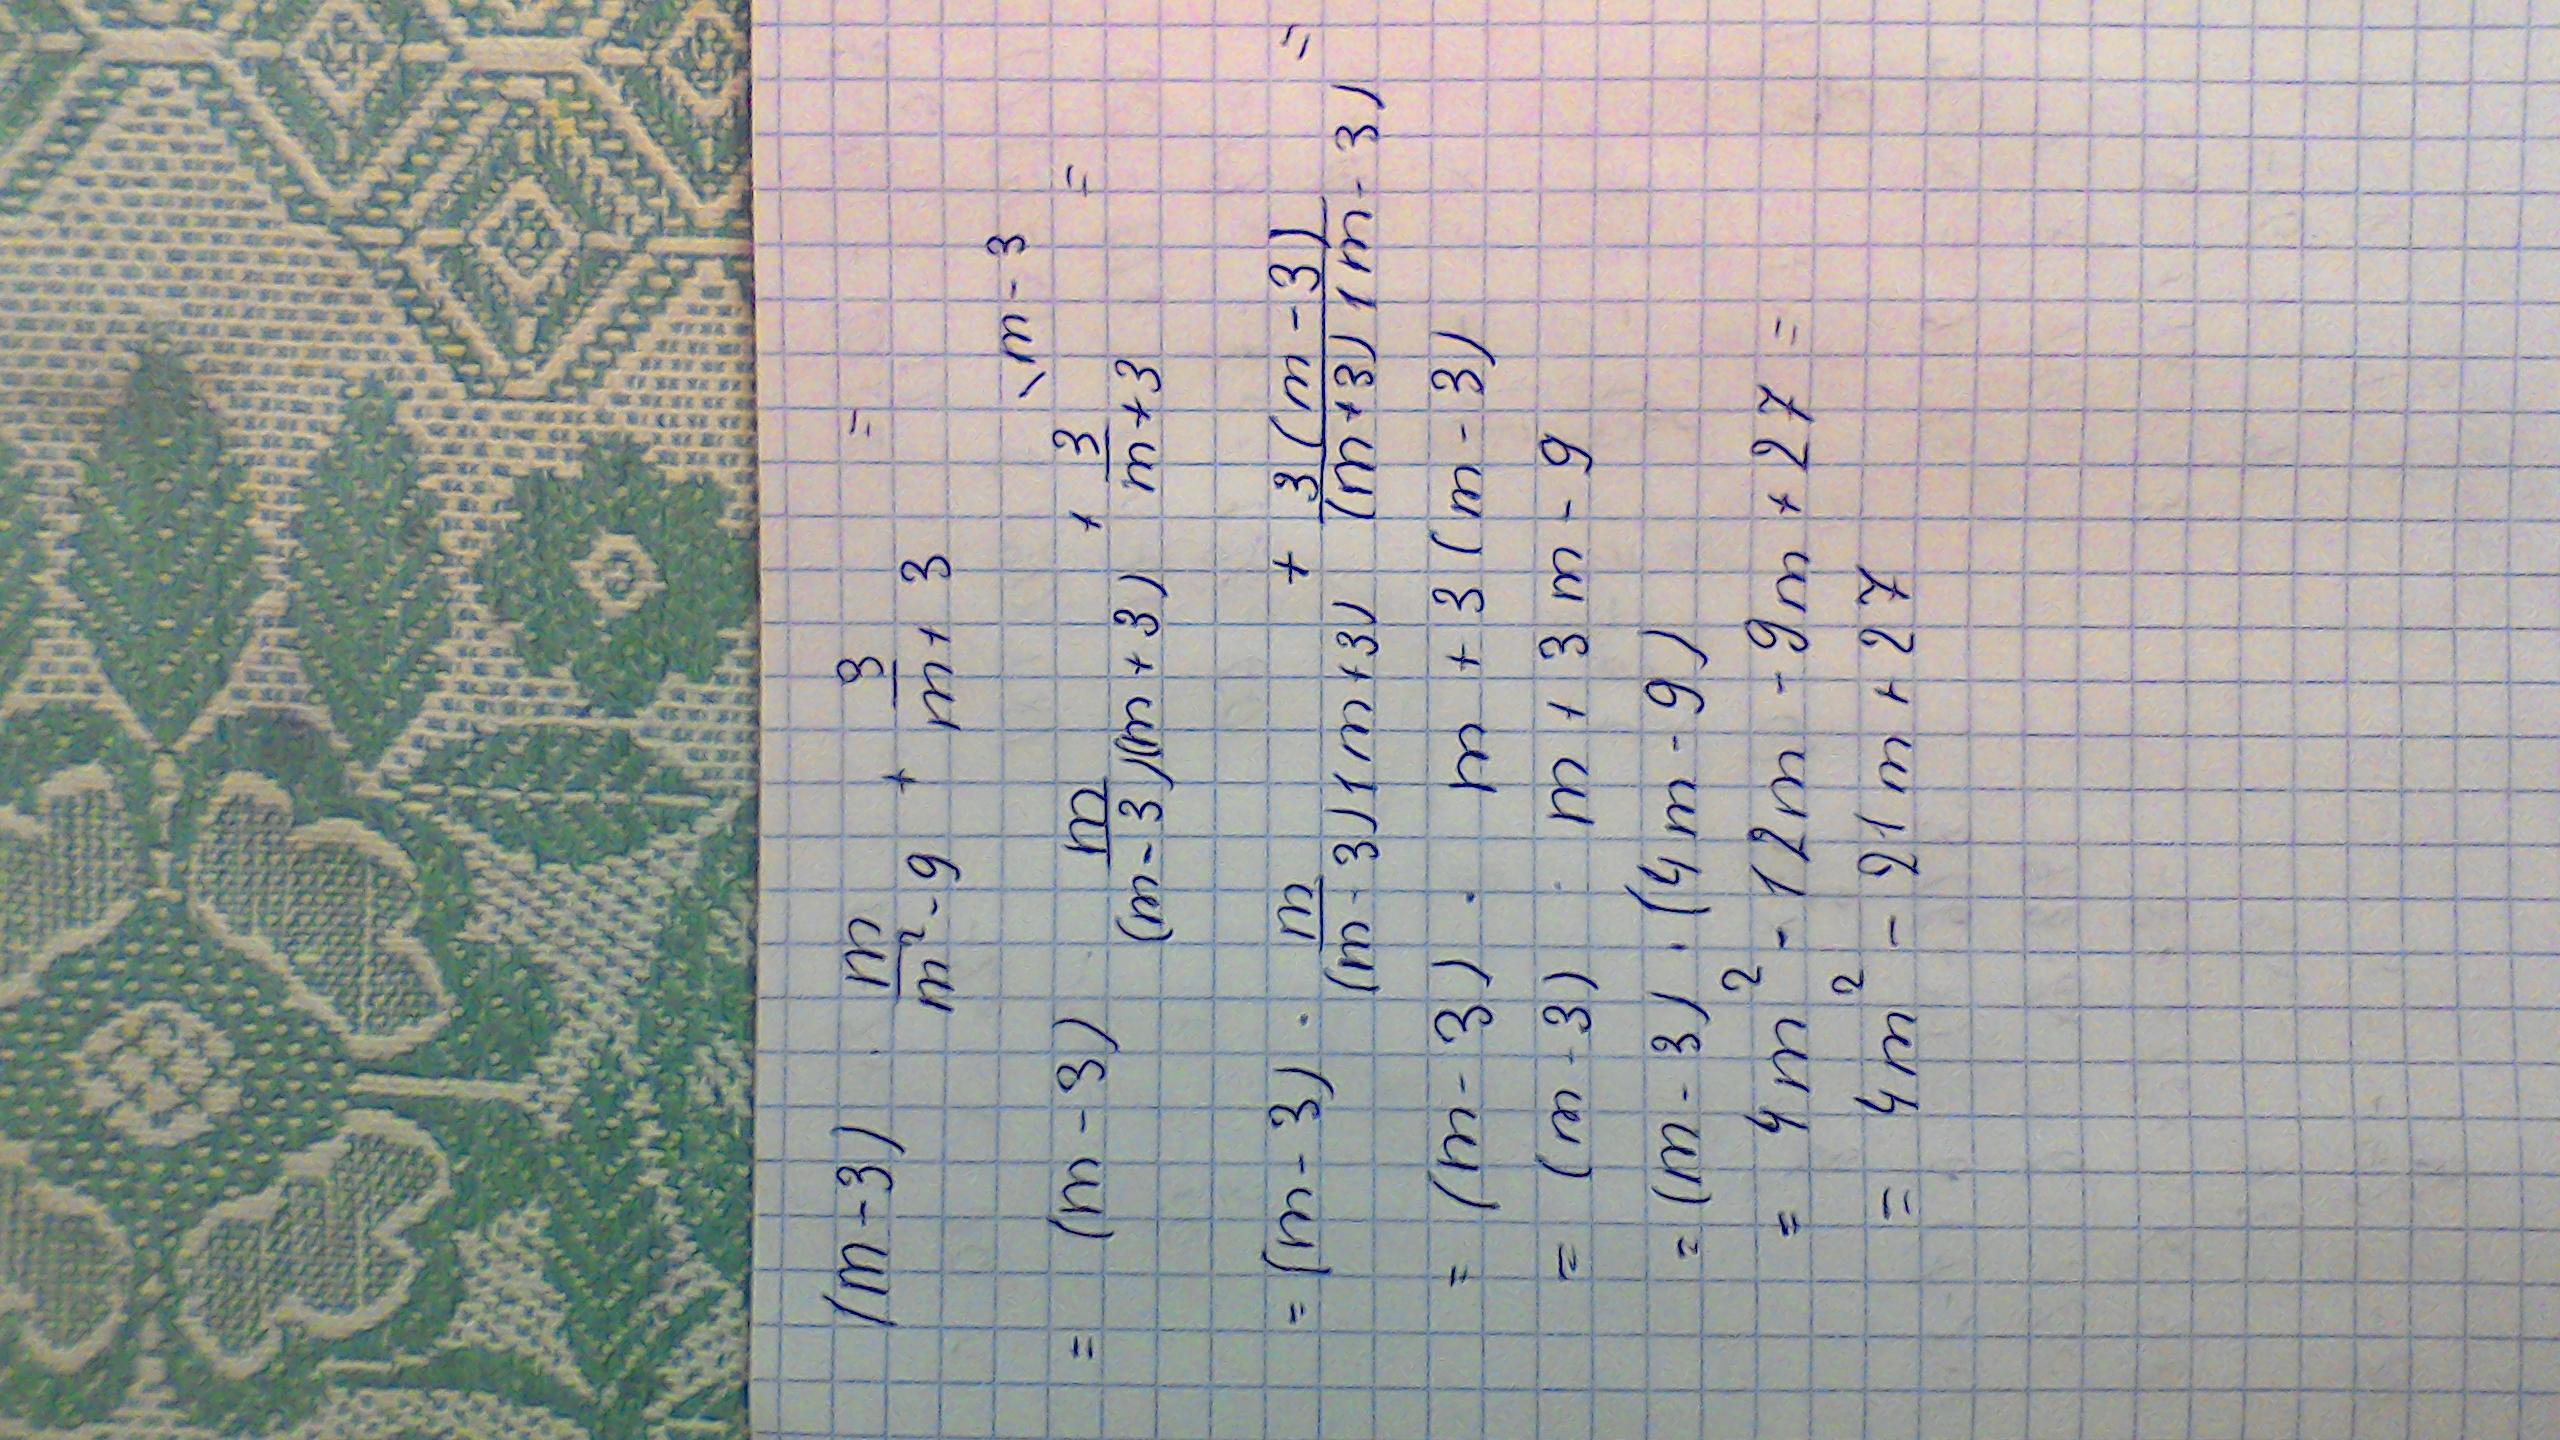 (m-3) · m/m²-9 + 3/m+3 =
\m-3
= (m-3) m/(m-3)(m+3) + 3/m+3 =
= (m-3) · m/(m-3)(m+3) + 3(m-3)/(m+3)(m-3) =
= (m-3) · m+3(m-3)
= (m-3) · m+3m-9
= (m-3) · (4m-9)
= 4m²-12m-9m+27=
= 4m²-21m+27